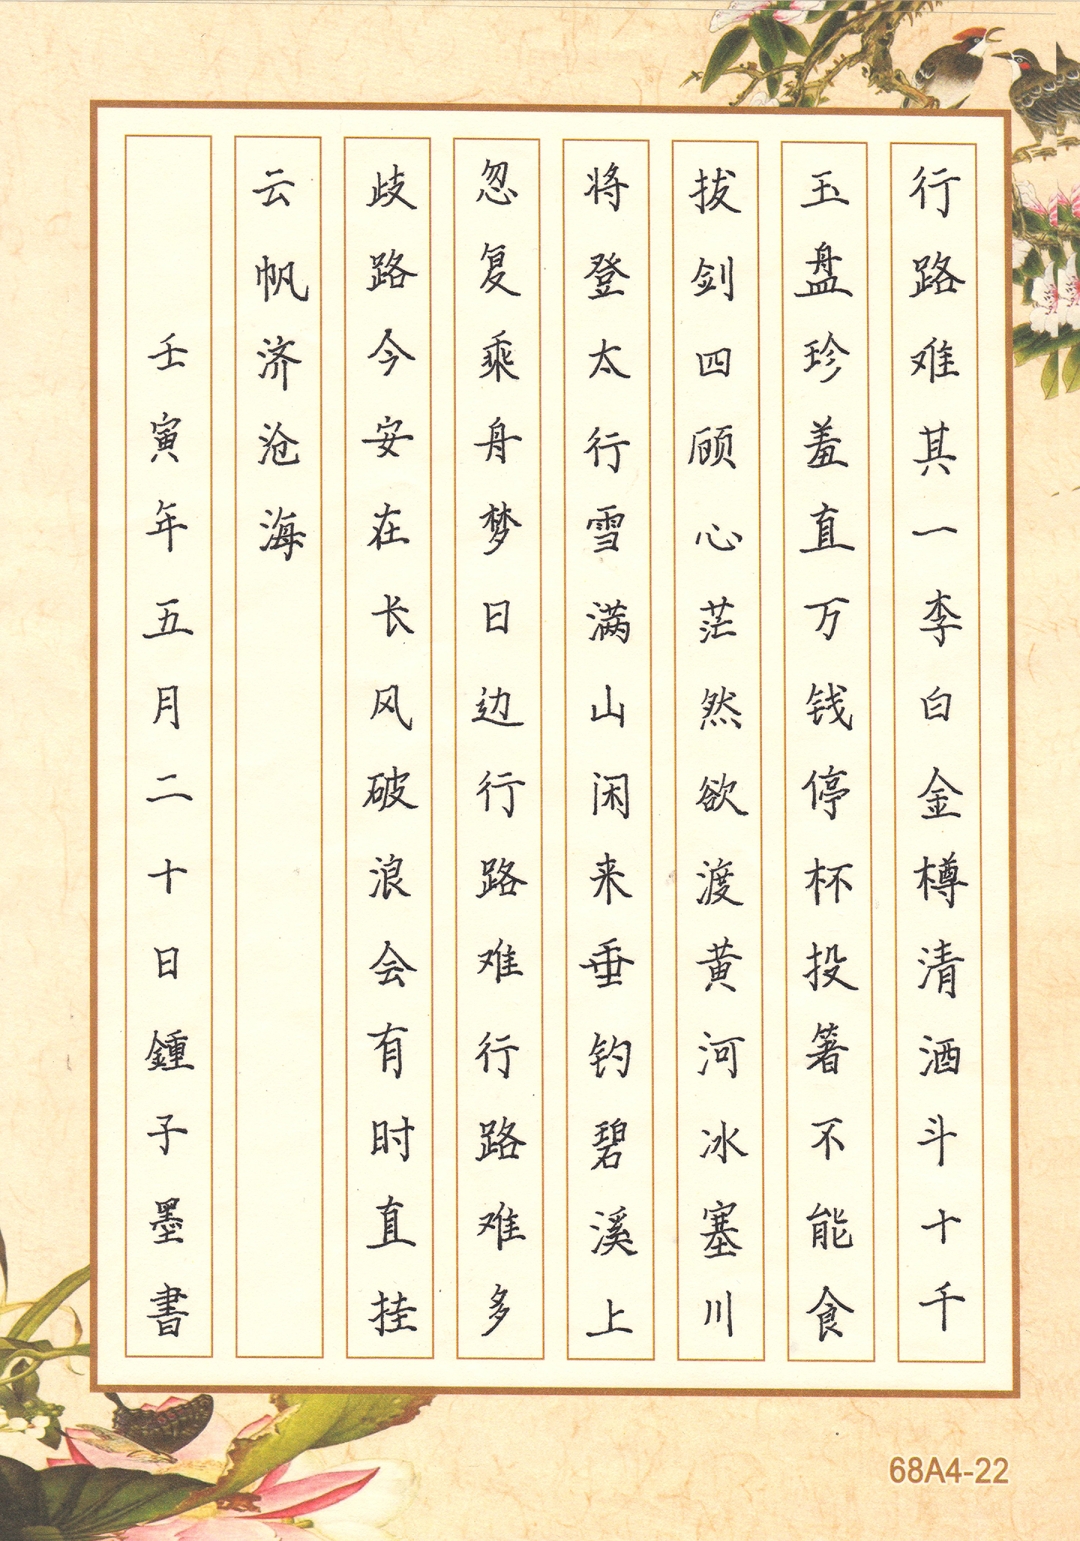 行路难其一李白金樽清酒斗十千
玉盘珍羞直万钱停杯投箸不能食
拔剑四顾心茫然欲渡黄河冰塞川
将登太行雪满山闲来垂钓碧溪上
忽复乘舟梦日边行路难行路难多
歧路今安在长风破浪会有时直挂
云帆济沧海
壬寅年五月二十日鍾子墨書
68A4-22